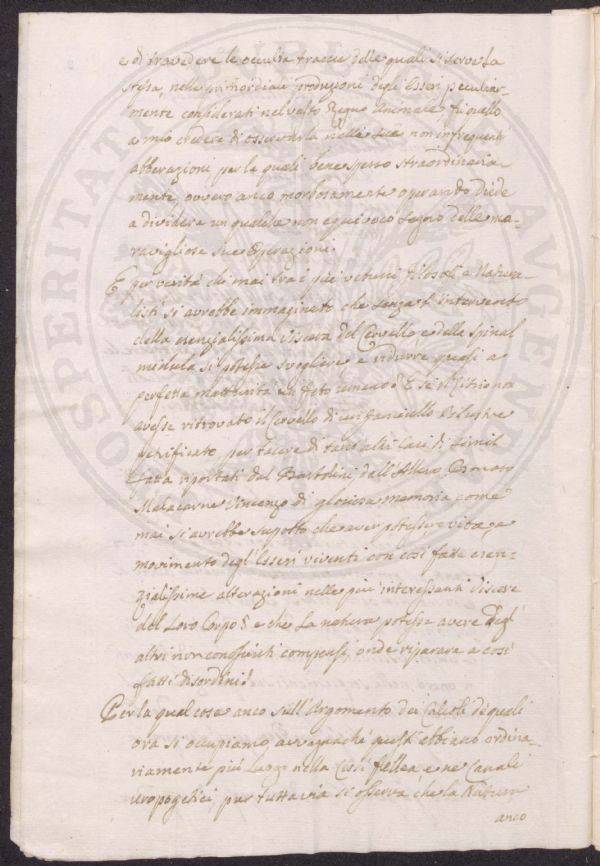 e di travedere le occulte traccie delle quali si serve la
stessa, nelle primordiali produzioni degli Esseri peculiar-
mente considerati nel vasto Regno Animale fu quello
a mio credere di osservarla nelle sue non infrequenti
abberazioni per le quali bene spesso straordinaria-
mente, ovvero anco morbosamente operando diede
a dividere un qualche non equivoco segno delle ma-
ravigliose sue Operazioni.
E per verità chi mai tra i più vetusti Filosofi e Natura-
listi si avrebbe immaginato che senza l'intervento
della essenzialissima viscera del Cervello, e della Spinal
midula si potesse svogliere e ridurre quasi a
perfetta matturità un feto umano? E se il
avesse ritrovato il Cervello di un fanciullo
petrificato per tacere di tanti altri Casi di simil
fatta riportati dal Bartolini, dall'Allero
Malacarne Vincenzo di gloriosa memoria come
mai si avrebbe suposto che aver potesse vita, e
movimento degl'Esseri viventi con così fatte essen-
zialissime alterazioni nelle più interessanti viscere
del Loro Corpo? e che la natura potesse avere degl'
altri non conosciuti compensi, onde riparare a così
fatti disordini!
Per la qual cosa anco sull'Argomento dei Calcoli de quali
ora si occupiamo, avvegnaché questi abbiano ordina-
riamente più luogo nella Cisti fellea e ne Canali
uropogetici pur tuttavia si osserva che la Natura
anco
PROSPERITATI PUBLICAE AUGENDAE